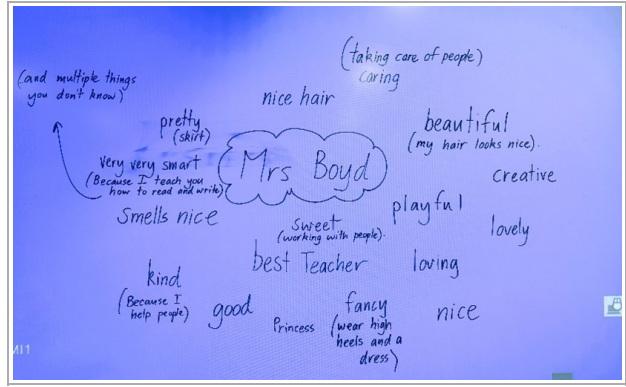 (taking care of people)
caring
(and multiple things
you don't know)
nice hair
pretty
(skirt)
beautiful
(my hair looks nice).
very very smart
(Because I teach you
how to read and write)
Mrs Boyd
creative
Smells nice
playful
lovely
sweet
(working with people).
best Teacher
loving
kind
(Because I
help people)
good
Princess
fancy
(wear high
heels and a
dress)
nice
MI1